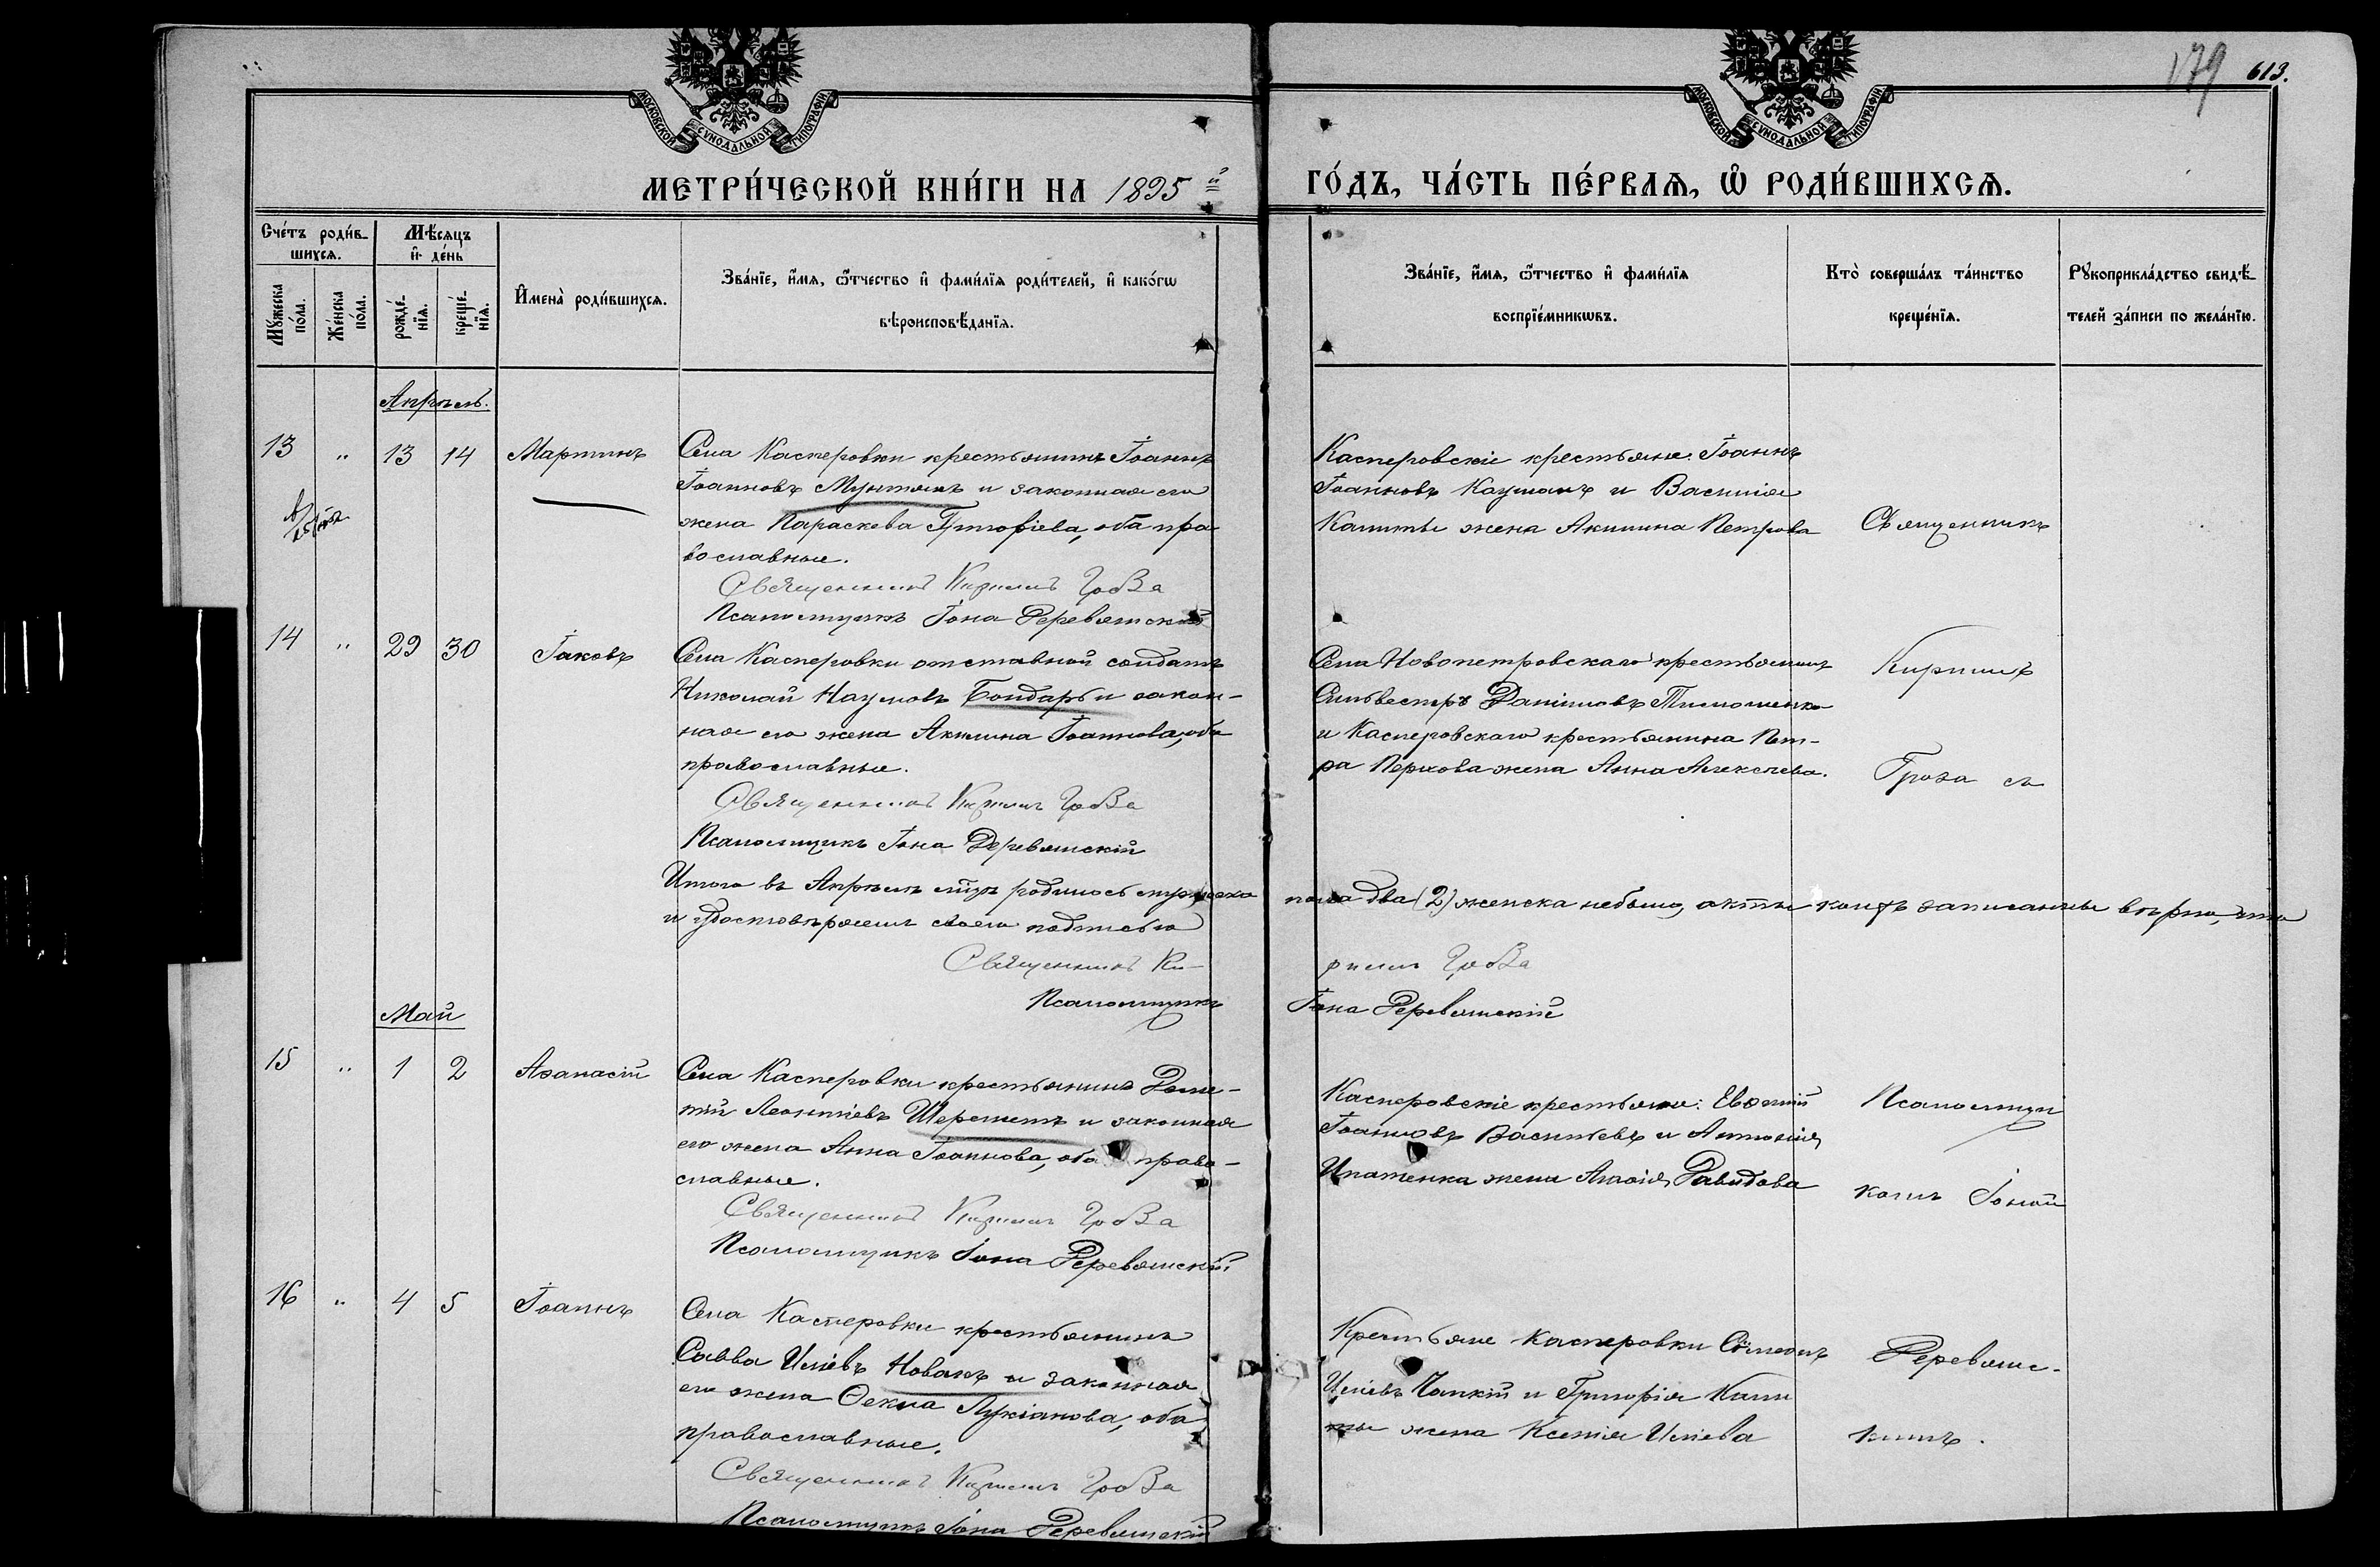 179 613.
МОСКОВСКОЙ СУНОДАЛЬНОЙ ТИПОГРАФІИ
МОСКОВСКОЙ СУНОДАЛЬНОЙ ТИПОГРАФІИ
МЕТРИ́ЧЕСКОЙ КНИ́ГИ НА 1895 й
ГО́ДЪ, ЧА́СТЬ ПЕ́РВАѦ, Ѽ РОДИ́ВШИХСѦ.
Сче́тъ роди́в-
шихсѧ.
Мꙋ́жеска
по́ла.
Же́нска
по́ла.
Мѣ́сяцъ
и҆ де́нь
рожде́-
нїѧ.
креще́-
нїѧ.
И҆мена̀ роди́вшихсѧ.
Зва́нїе, и҆́мѧ, ѻ҆́тчество и҆ фами́лїѧ роди́телей, и҆ како́гѡ
вѣроисповѣ́данїѧ.
Зва́нїе, и҆́мѧ, ѻ҆́тчество и҆ фами́лїѧ
воспрїе́мникѡвъ.
Кто̀ соверша́лъ та́инство
креще́нїѧ.
Рꙋкоприкла́дство свидѣ́-
телей за́писи по жела́нїю.
Апрѣль.
13 " 13 14 Мартинъ
Села Касперовки крестьянинъ Іоаннъ
Іоанновъ Мунтянъ и законная его
жена Параскева Тимофіева, оба пра-
вославные.
Священникъ Кириллъ Гроза
Псаломщикъ Іона Деревянскій
Касперовскіе крестьяне: Іоаннъ
Іоанновъ Науманъ и Василія
Калиты жена Акилина Петрова
Священникъ
14 " 29 30 Іаковъ
Села Касперовки отставной солдатъ
Николай Наумовъ Бондарь и закон-
ная его жена Акилина Іоаннова, оба
православные.
Священникъ Кириллъ Гроза
Псаломщикъ Іона Деревянскій
Села Новопетровскаго крестьянинъ
Сильвестръ Даніиловъ Тимошенко
и Касперовскаго крестьянина Пет-
ра Перкова жена Анна Алексѣева.
Кирилъ
Гроза съ
Итого въ Апрѣлѣ мцѣ родилось мужеска пола два (2) женска небыло, акты коихъ записанны вѣрно, что
и удостовѣряемъ своею подписью
Священникъ Ки- риллъ Гроза
Псаломщикъ Іона Деревянскій
Май
15 " 1 2 Аѳанасій
Села Касперовки крестьянинъ
тій Леонтіевъ Шереметъ и законная
его жена Анна Іоаннова, оба право-
славные.
Священникъ Кириллъ Гроза
Псаломщикъ Іона Деревянскій
Касперовскіе крестьяне: Евѳимій
Іоанновъ Васильевъ и Антонія
Ипатенка жена Давидова
Псаломщи
комъ Іоной
16 " 4 5 Іоаннъ
Села Касперовки крестьянинъ
Савва Иліевъ Новакъ и законная
его жена Ѳекла Лукіанова, оба
православные.
Священникъ Кириллъ Гроза
Псаломщикъ Іона Деревянскій
Крестьяне Касперовки Сѵмеонъ
Иліевъ Чапкій и Григорія Кали
ты жена Ксенія Иліева
Деревянс-
кимъ.